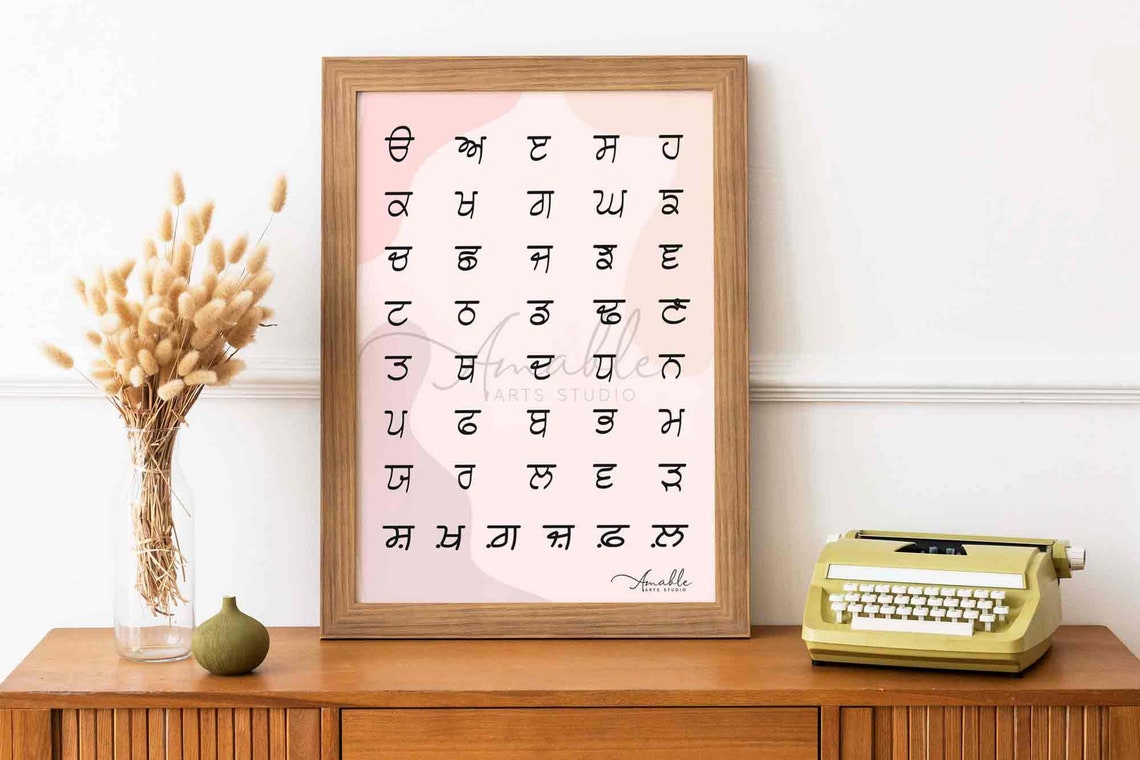 ੳ ਅ ੲ ਸ ਹ
ਕ ਖ ਗ ਘ ਙ
ਚ ਛ ਜ ਝ ਞ
ਟ ਠ ਡ ਢ ਣ
ਤ ਥ ਦ ਧ ਨ
Amable
ARTS STUDIO
ਪ ਫ ਬ ਭ ਮ
ਯ ਰ ਲ ਵ ੜ
ਸ਼ ਖ਼ ਗ਼ ਜ਼ ਫ਼ ਲ਼
Amable
ARTS STUDIO